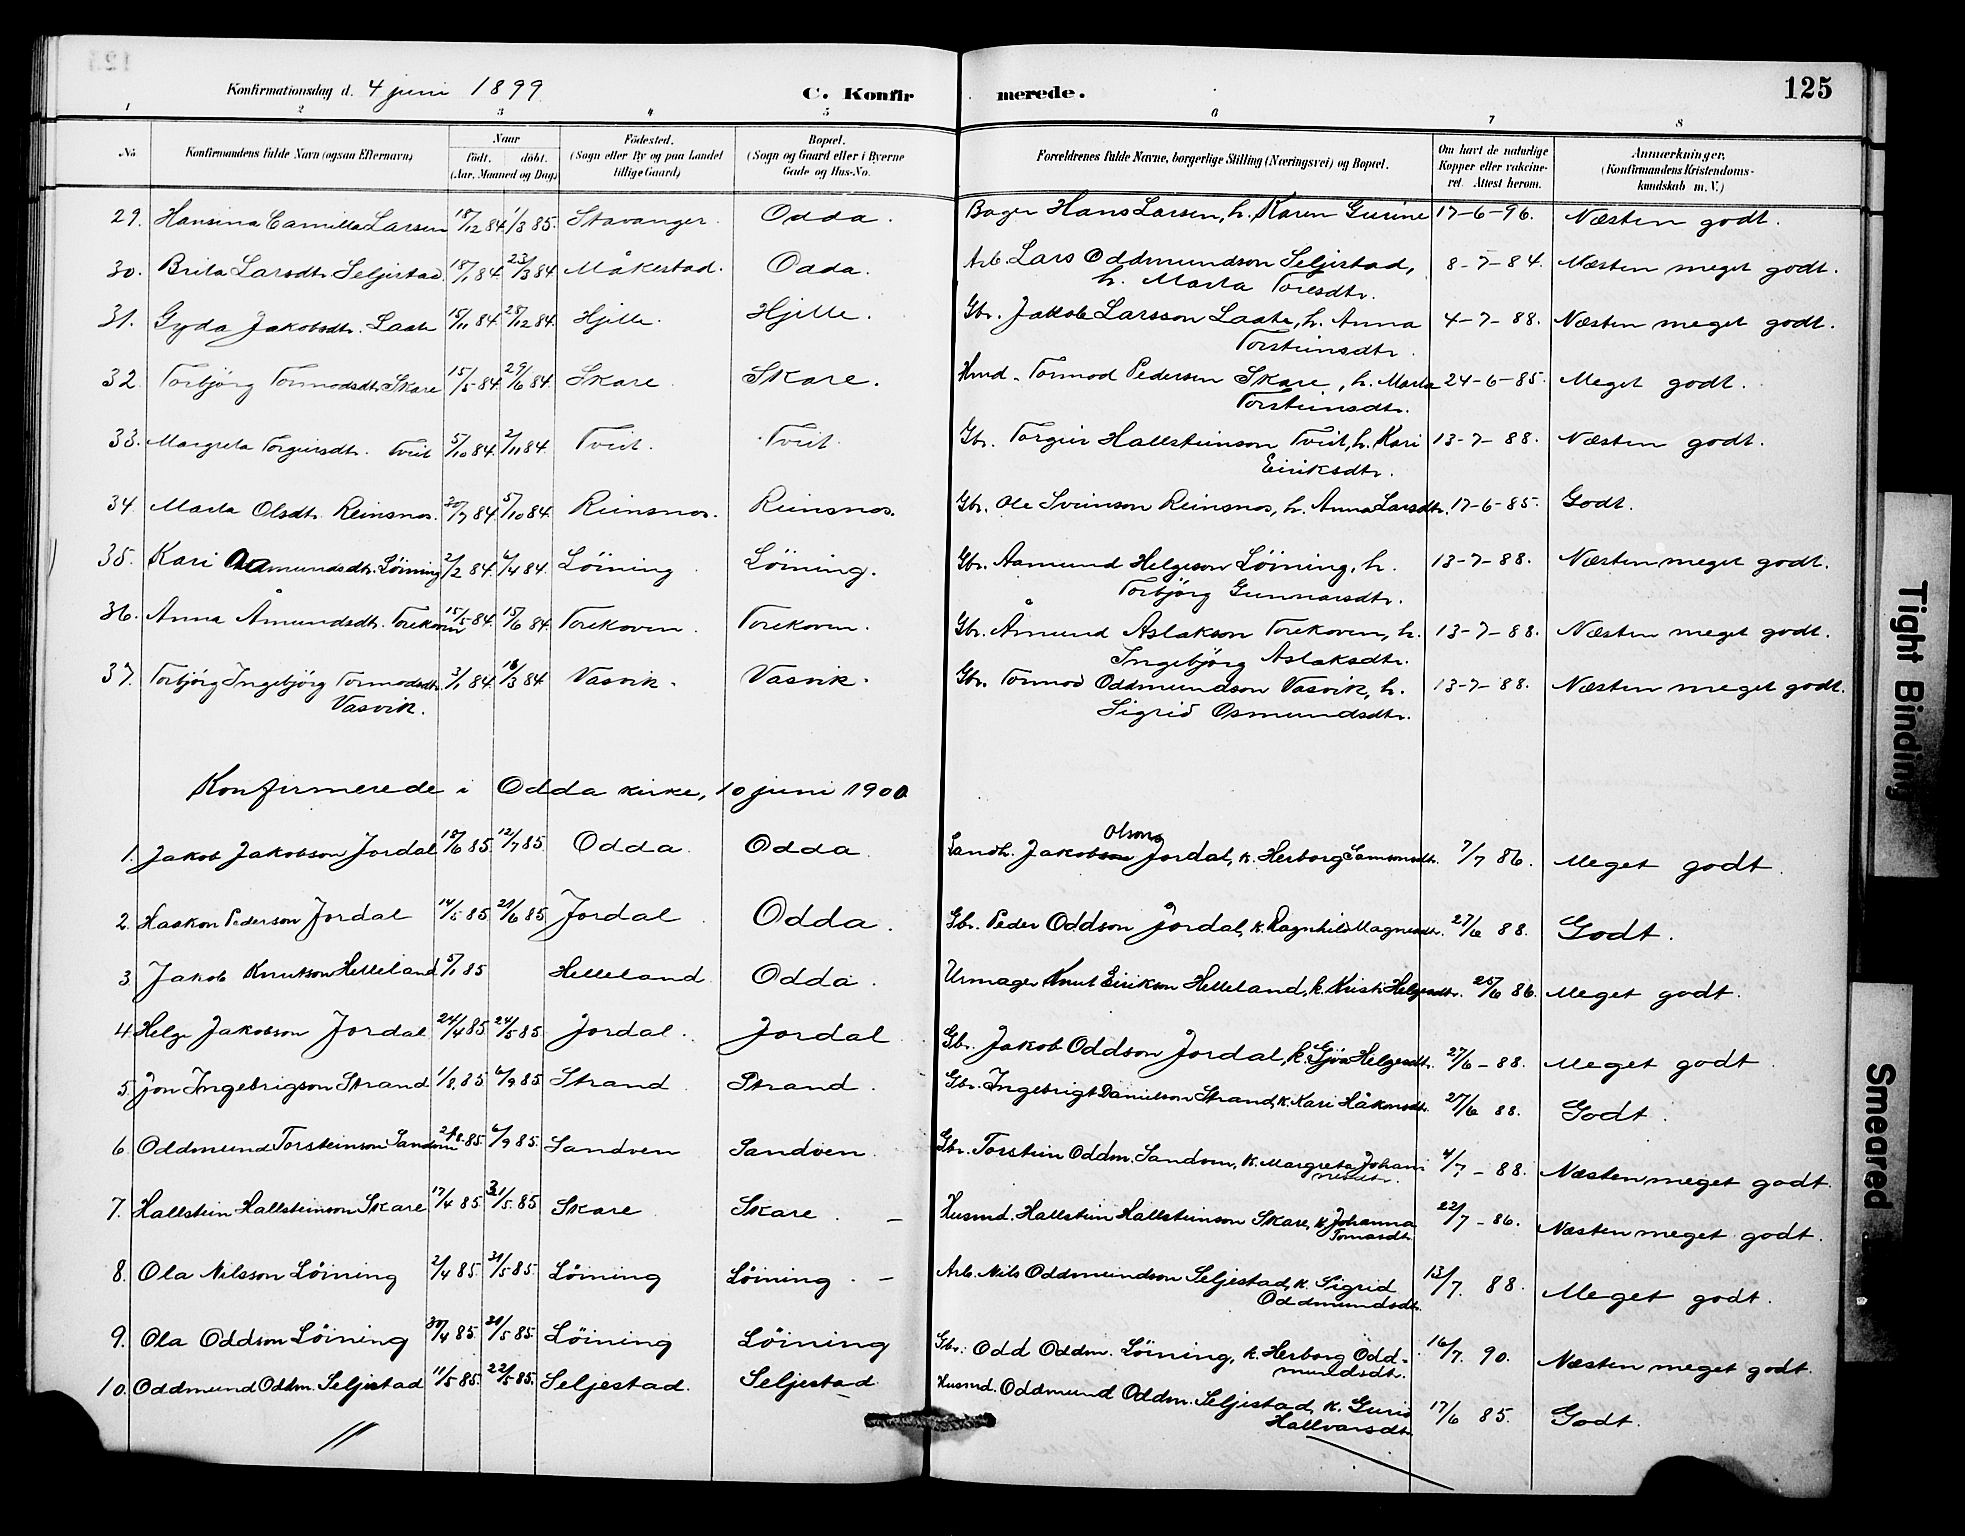 125
Konfirmationsdag d. 4 juni 1899 C. Konfirmerede.
1 2 3 4 5 6 7 8
No Konfirmandens fulde Navn (ogsaa Efternavn) Naar født. døbt. (Aar, Maaned og Dag) Fødested. (Sogn eller By og paa Landet tillige Gaard) Bopæl. (Sogn og Gaard eller i Byerne Gade og Hus-No. Forældrenes fulde Navne, borgerlige Stilling (Næringsvei) og Bopæl. Om havt de naturlige Kopper eller vakcineret. Attest herom. Anmærkninger, (Konfirmandens Kristendomskundskab m. V.)
29. Hansina Camilla Larsen 18/12 84 1/3 85. Stavanger. Odda. Bager Hans Larsen, h. Karen Gurine 17-6-96. Næsten godt.
30. Brita Larsdtr. Seljestad 18/1 84 23/3 84 Måkestad. Odda. Arb. Lars Oddmundson Seljestad, 8-7-84. Næsten meget godt.
h. Marta Toresdtr.
31. Gyda Jakobsdtr. Laate 15/11 84 28/12 84. Hjelle. Hjelle. Gbr. Jakob Larsson Laate, h. Anna 4-7-88. Næsten meget godt.
Torsteinsdtr.
32. Torbjörg Tormodsdtr. Skare 15/5 84. 29/6 84. Skare. Skare. Hmd. Tormod Pedersen Skare, h. Marta 24-6-85. Meget godt.
Torsteinsdtr.
33. Margreta Torgeirsdtr. Tveit 5/10 84. 2/11 84. Tveit. Tveit. Gbr. Torgeir Hallsteinson Tveit, h. Kari 13-7-88. Næsten godt.
Eiriksdtr.
34. Marta Olsdtr. Reinsnos. 30/7 84 5/10 84. Reinsnos. Reinsnos. Gbr. Ole Sveinson Reinsnos, h. Anna Larsdtr. 17-6-85. Godt.
35. Kari Aamundsdtr. Löining 2/2 84. 6/4 84. Löining Löining. Gbr. Aamund Helgeson Löining, h. 13-7-88. Næsten meget godt.
Torbjörg Gunnarsdtr.
36. Anna Åmundsdtr. Torekoven 15/5 84. 15/6 84. Torekoven. Torekoven. Gbr. Åmund Aslakson Torekoven, h. 13-7-88. Næsten meget godt.
Ingebjörg Aslaksdtr.
37. Torbjörg Ingebjörg Tormodsdtr. 3/1 84. 16/3 84 Vasvik. Vasvik. Gbr. Tormod Oddmundson Vasvik, h. 13-7-88. Næsten meget godt.
Vasvik. Sigrid Osmundsdtr.
Konfirmerede i Odda kirke, 10 juni 1900
Olsons
1. Jakob Jakobson Jordal 18/6 85. 12/7 85. Odda. Odda. Landh. Jakobson Jordal, k. Herborg Samsonsdtr. 7/7 86. Meget godt.
2. Haakon Pederson Jordal 14/5 85. 21/6 85. Jordal. Odda. Gbr. Peder Oddson Jordal, k. Ragnhild Magnesdtr. 27/6 88. Godt.
3. Jakob Knutson Helleland 5/1 85 Helleland Odda. Urmager Knut Eirikson Helleland, k. Kristi Helgesdtr. 25/6 86. Meget godt.
4. Helge Jakobson Jordal 24/4 85. 24/5 85. Jordal. Jordal. Gbr. Jakob Oddson Jordal, k. Gjöa Helgesdtr. 27/6-88. Meget godt.
5. Jon Ingebrigson Strand 1/8. 85 6/9 85. Strand. Strand. Gbr. Ingebrigt Danielson Strand, k. Kari Håkonsdtr. 27/6 88. Godt.
6. Oddmund Torsteinson Sandven 85. 6/9 85. Sandven Sandven. Gbr. Torstein Oddm. Sandven, k. Margreta Johannesdtr. 4/7-88. Næsten meget godt.
7. Hallstein Hallsteinson Skare 17/4 85 31/5. 85 Skare. Skare. – Husmd. Hallstein Hallsteinson Skare, k. Johanna 22/7-86. Næsten meget godt.
Tomasdtr.
8. Ola Nilsson Löining 2/4 85. 31/5 85. Löining Löining. – Arb. Nils Oddmundson Seljestad, k. Sigrid 13/7. 88. Meget godt.
Oddmundsdtr.
9. Ola Oddson Löining 30/4 85. 31/5 85. Löining Löining Gbr. Odd Oddm. Löining, k. Herborg Odd- 16/7. 90. Næsten meget godt.
mundsdtr.
10. Oddmund Oddm. Seljestad 11/5 85. 22/5 85. Seljestad. Seljestad. Husmd. Oddmund Oddm. Seljestad, k. Guro 17/6 85. Godt.
Hallvarsdtr.
Tight Binding
Smeared